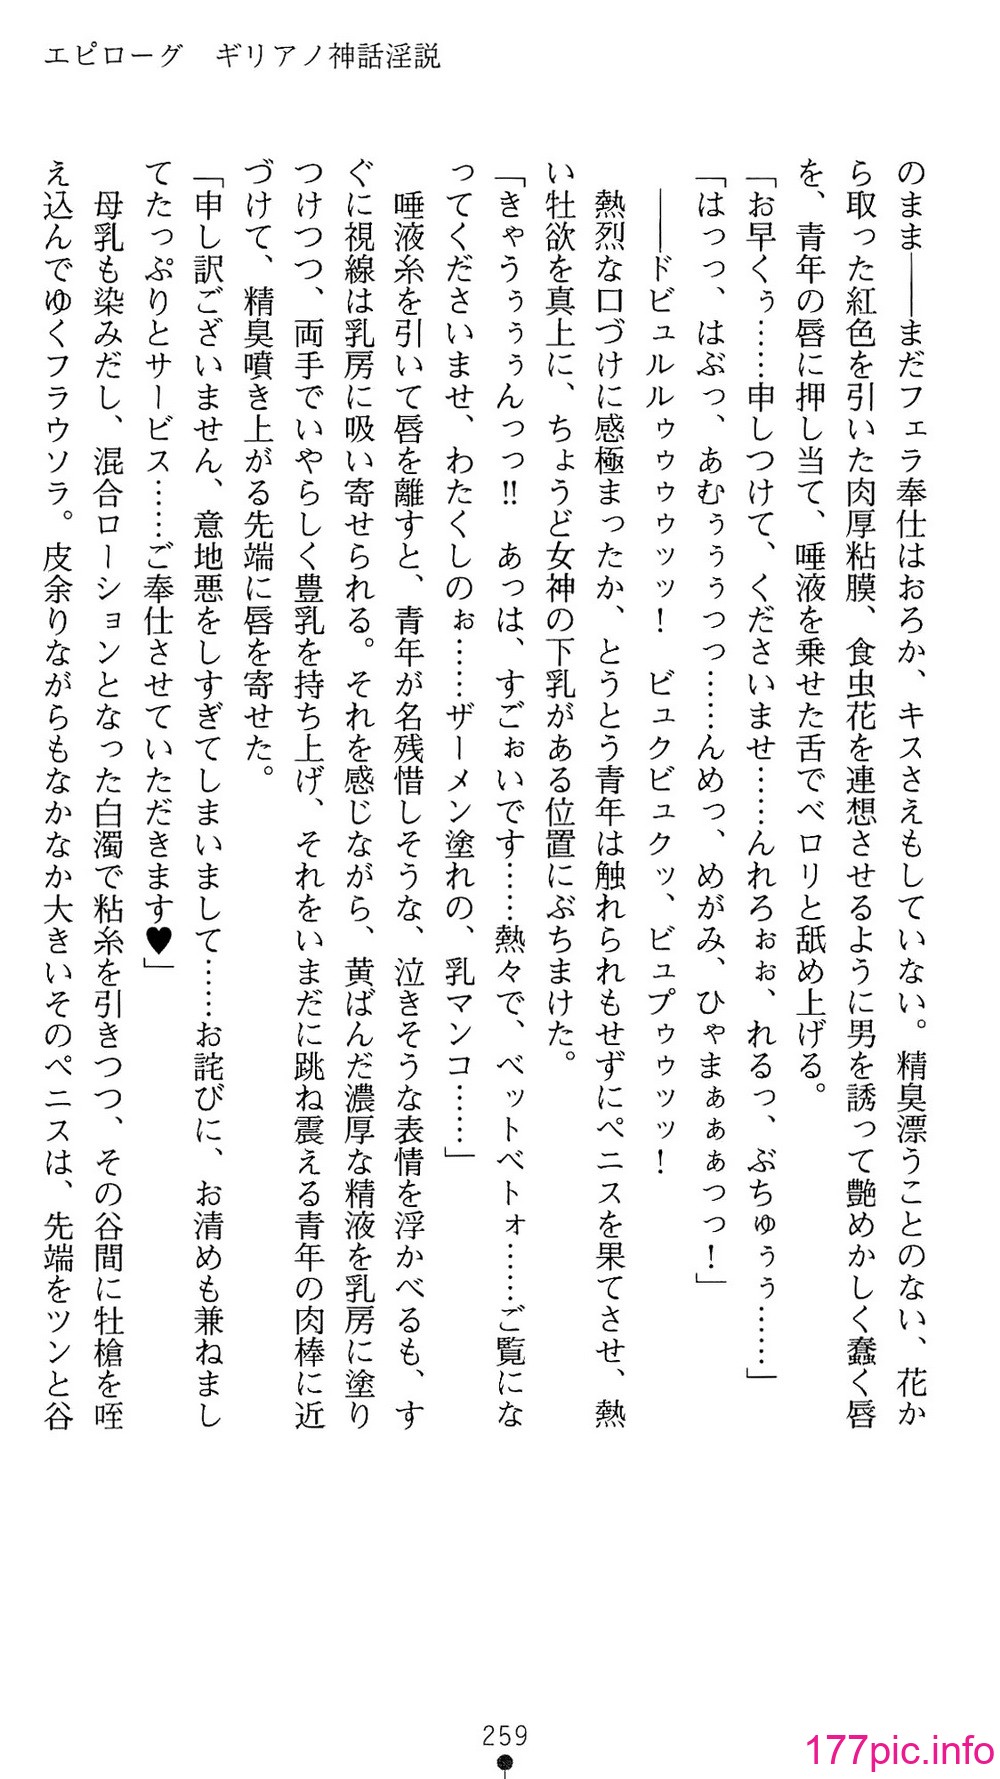 エピローグ　ギリアノ神話淫説
のまま――まだフェラ奉仕はおろか、キスさえもしていない。精臭漂うことのない、花か
ら取った紅色を引いた肉厚粘膜、食虫花を連想させるように男を誘って艶めかしく蠢く唇
を、青年の唇に押し当て、唾液を乗せた舌でベロリと舐め上げる。
「お早くぅ……申しつけて、くださいませ……んれろぉぉ、れるっ、ぶちゅぅぅ……」
「はっっ、はぶっ、あむぅぅぅっっ……んめっ、めがみ、ひゃまぁぁぁっっ！」
――ドビュルルゥゥゥッッ！　ビュクビュクッ、ビュプゥゥッッ！
熱烈な口づけに感極まったか、とうとう青年は触れられもせずにペニスを果てさせ、熱
い牡欲を真上に、ちょうど女神の下乳がある位置にぶちまけた。
「きゃうぅぅぅんっっ!!　あっは、すごぉいです……熱々で、ベットベトォ……ご覧にな
ってくださいませ、わたくしのぉ……ザーメン塗れの、乳マンコ……」
唾液糸を引いて唇を離すと、青年が名残惜しそうな、泣きそうな表情を浮かべるも、す
ぐに視線は乳房に吸い寄せられる。それを感じながら、黄ばんだ濃厚な精液を乳房に塗り
つけつつ、両手でいやらしく豊乳を持ち上げ、それをいまだに跳ね震える青年の肉棒に近
づけて、精臭噴き上がる先端に唇を寄せた。
「申し訳ございません、意地悪をしすぎてしまいまして……お詫びに、お清めも兼ねまし
てたっぷりとサービス……ご奉仕させていただきます♥」
母乳も染みだし、混合ローションとなった白濁で粘糸を引きつつ、その谷間に牡槍を咥
え込んでゆくフラウソラ。皮余りながらもなかなか大きいそのペニスは、先端をツンと谷
259
177pic.info